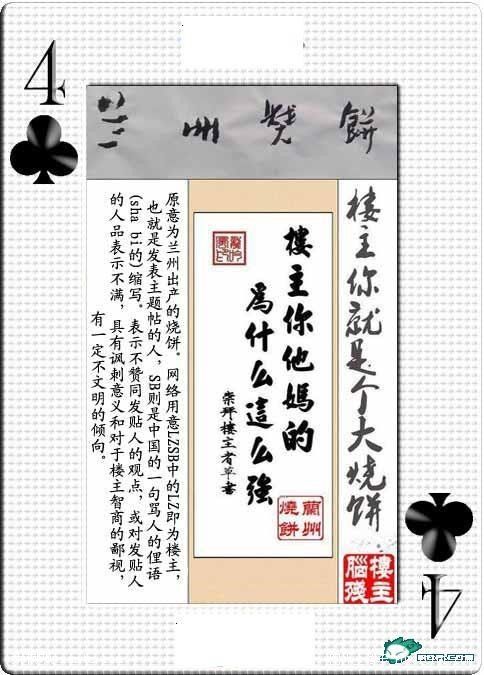 4
兰州烧餅
樓主你就是个大烧餅
樓主你他媽的
爲什么這么強
崇拜樓主者草書
蘭州
燒餅
樓主
腦殘
原意为兰州出产的烧饼。网络用意LZSB中的LZ即为楼主，
也就是发表主题帖的人，SB则是中国的一句骂人的俚语
(sha bi的)缩写。表示不赞同发贴人的观点，或对发贴人
的人品表示不满，具有讽刺意义和对于楼主智商的鄙视，
有一定不文明的倾向。
4